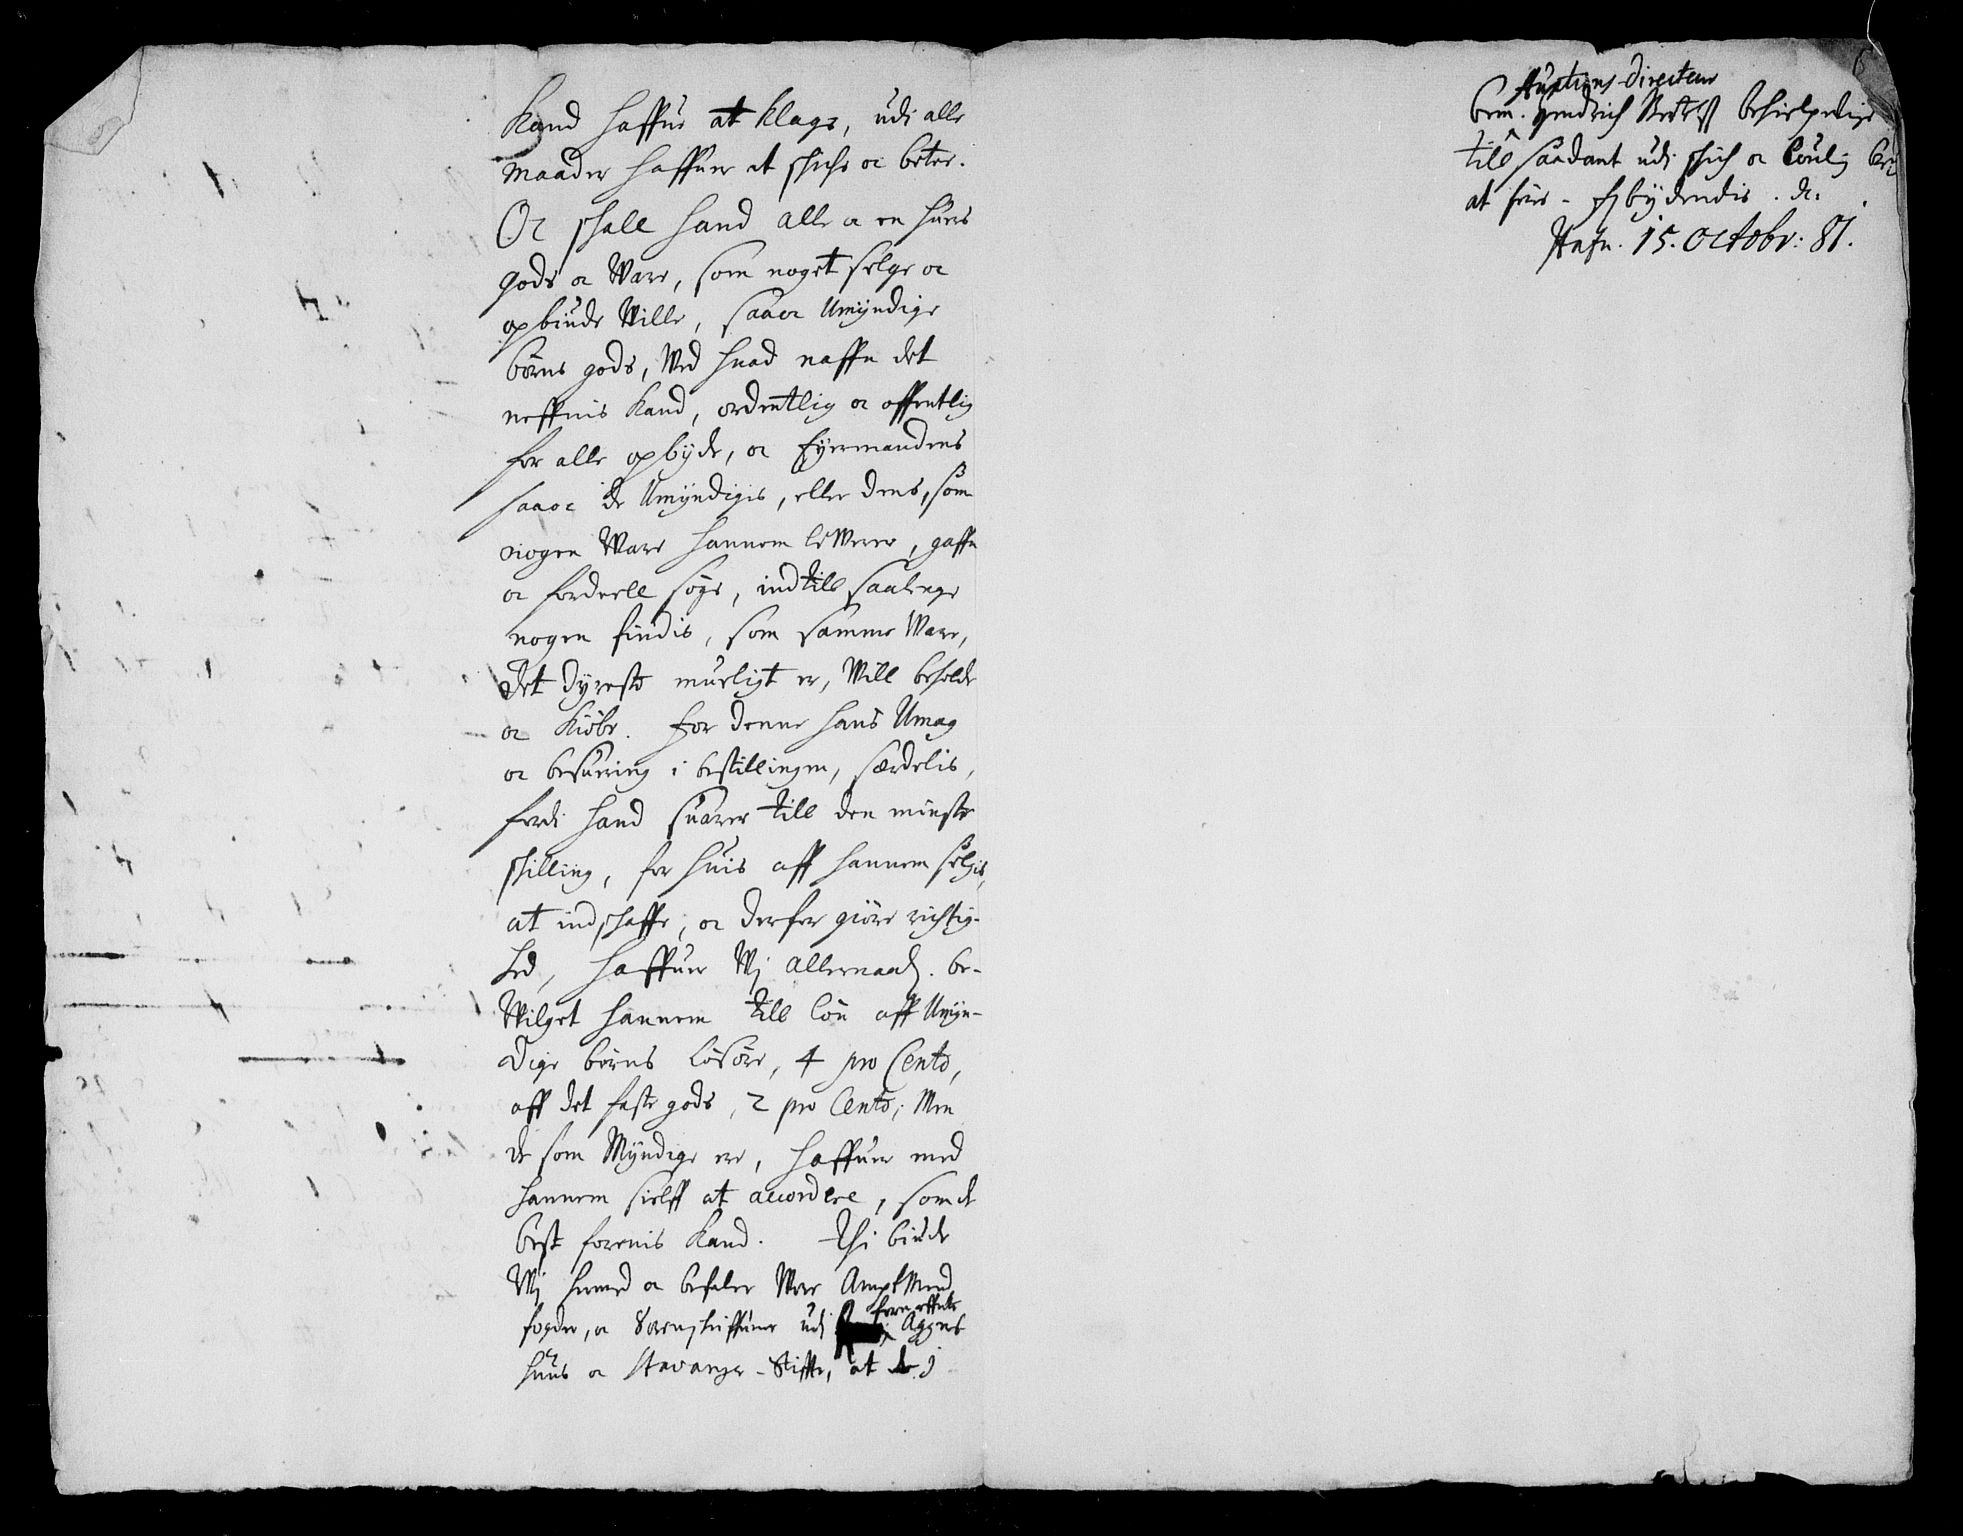 Kand haffue at klage, udi alle
maader haffuer at skicke oc beter.
Oc skall hand alle oc en huers
gods oc Ware, som noget selge oc
opbiude Wille, saaoc Umyndige
børns gods, Wed huad naffn det
neffnis kand, ordentlig oc offentlig
for alle opbyde, oc Eyermandens
saaoc de Umyndigis, eller dens, som
nogen Ware hannem leWerer, gaffn
oc fordeell søge, indtill saalenge
nogen findis, som samme Ware,
det dyreste mueligt er, Will beholde
oc Kiøbe. For denne hans Umag
oc besuering i bestillingen, særdelis,
ferdi hand suarer till den minste
skilling, for huis aff hannem selgis,
at indskaffe, oc derfor giøre richtig-
hed, haffuer Wj allernaad. be-
Wilget hannem till løn aff Umyn-
dige børns løsøre, 4 pro Cento,
aff det faste gods, 2 pro Cento; Men
de som Myndige ere, haffuer med
hannem sielff at accordere, som de
best forenis kand. Thi biude
Wj hermed oc befaler Wore AmptMend
forneffnte
fogder, oc Sorenskriffuere udi Agers
huus oc Stavanger-Stifte, at
Auctions-Directeur
bem. Hendrich behielpelige
till saadant udi skick oc loulig
at føre. Forbydendis. etc.
Hafn. 15. Octobr: 81.